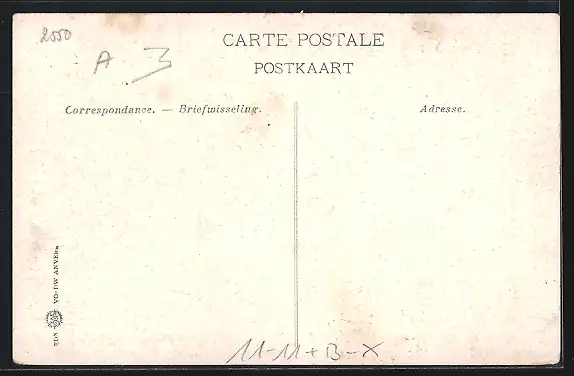 2550
A 3
CARTE POSTALE
POSTKAART
Correspondance. — Briefwisseling.
Adresse.
EDN VO-DW ANVERS
11-11+B-X